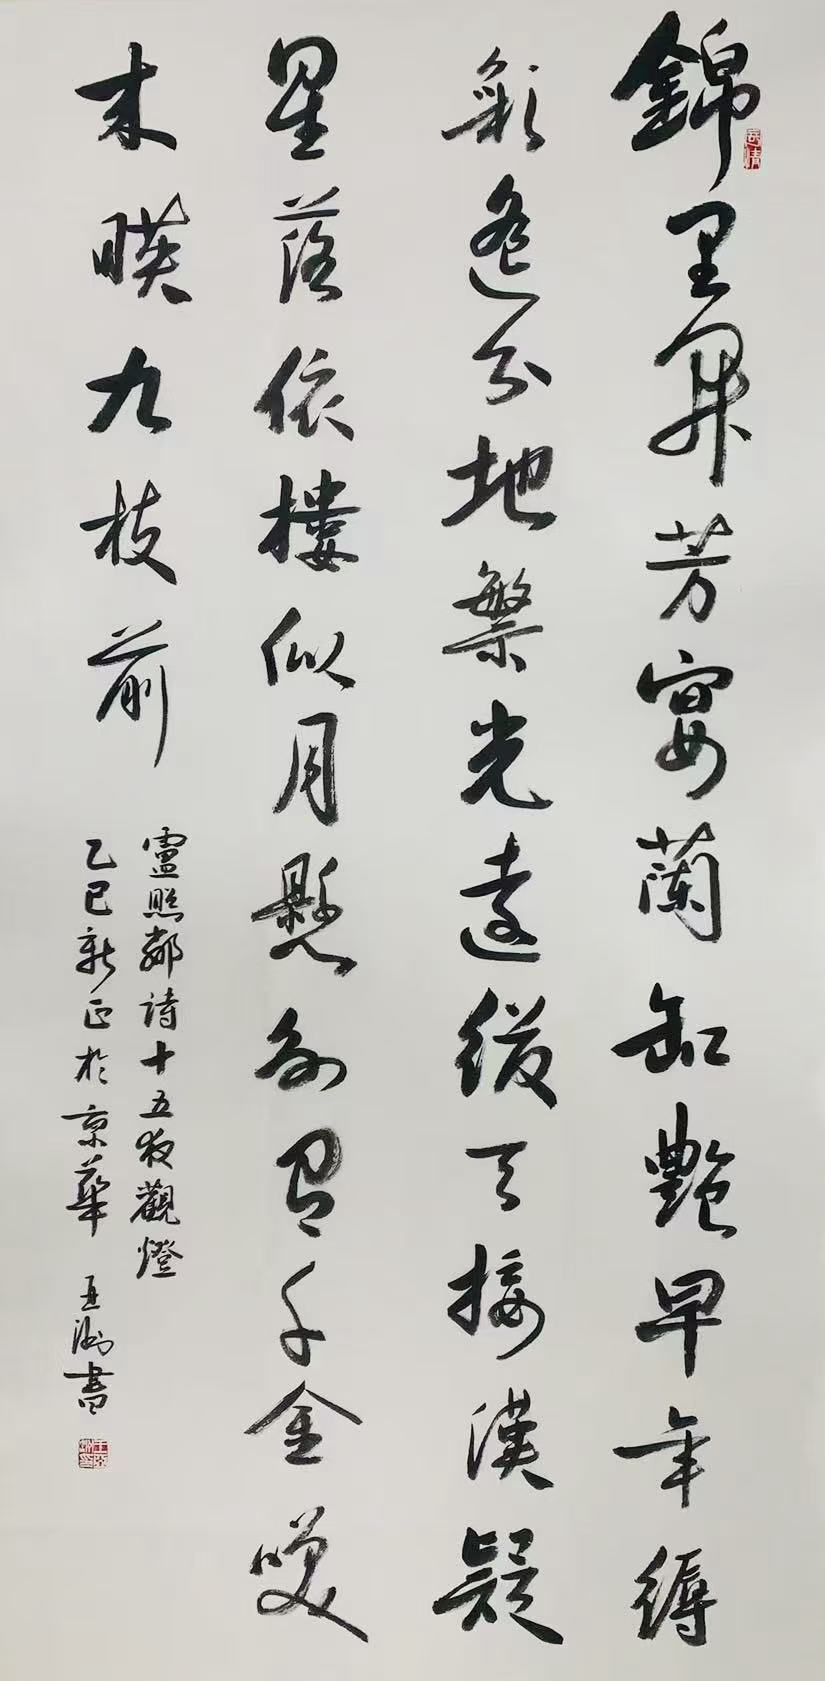 錦里開芳宴蘭缸艷早年縟
彩遙分地繁光遠綴天接漢疑
星落依樓似月懸別有千金笑
来映九枝前
盧照鄰詩十五夜觀燈
乙巳新正於京華 亚洲書